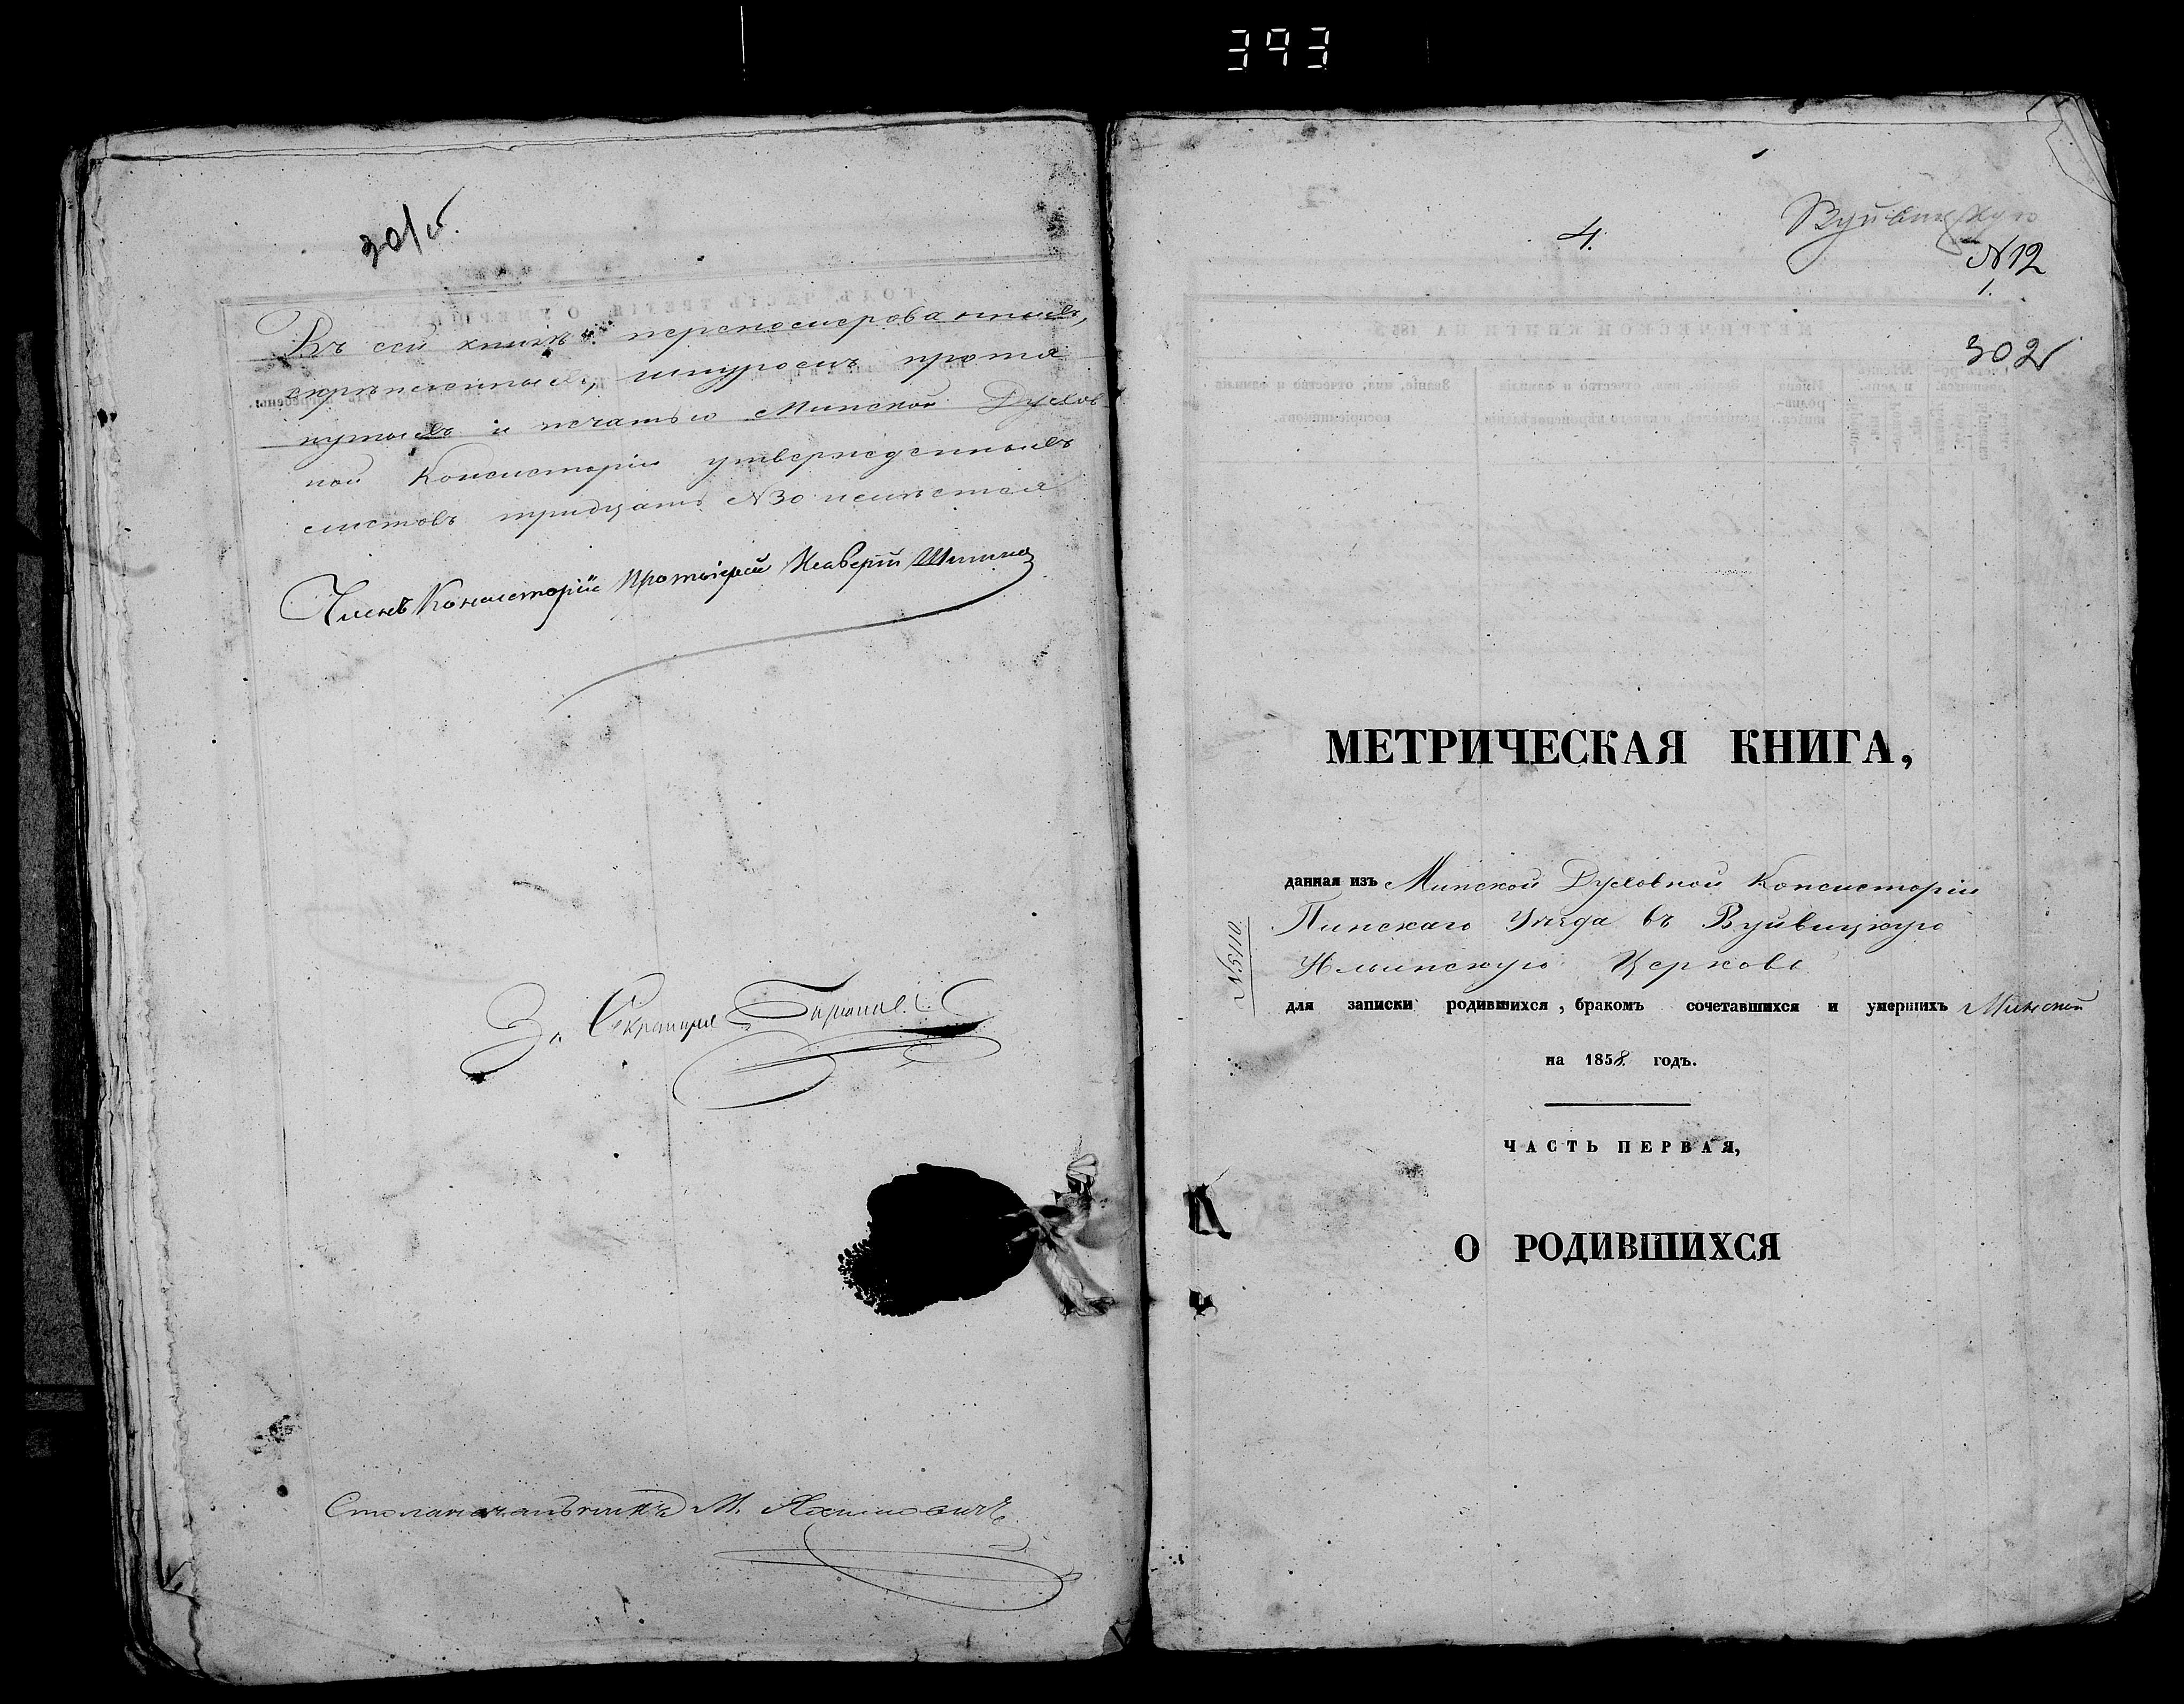 393
301 об.
Въ сей книгѣ перенумерованныхъ,
скрѣпленныхъ, шнуромъ протя
нутыхъ и печатью Минской Духов
ной Консисторіи утвержденныхъ
листовъ тридцать №30 имѣется
Членъ Консисторіи Протоіерей
За Секретаря
Столоначальникъ М. Яхимовичъ
4.
Вуйвицкую
№12
1.
302
МЕТРИЧЕСКАЯ КНИГА,
данная изъ Минской Духовной Консисторіи
Пинскаго Уѣзда въ Вуйвицкую
Ильинскую Церковь
№5110
для записки родившихся, бракомъ сочетавшихся и умершихъ Минской
на 1858. годъ.
ЧАСТЬ ПЕРВАЯ,
О РОДИВШИХСЯ